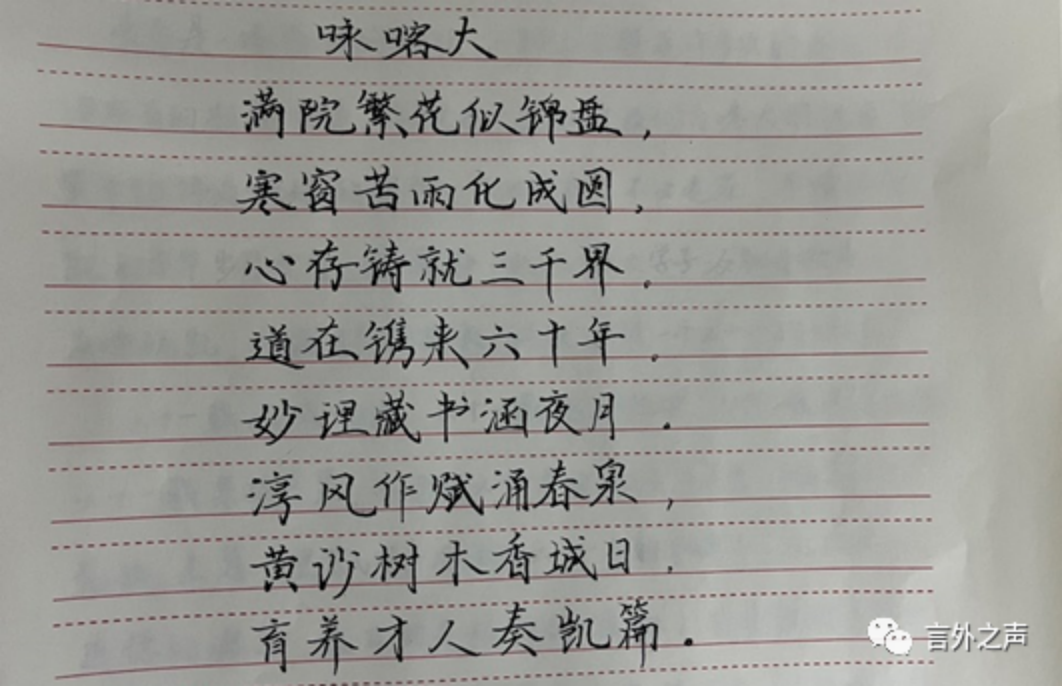 咏喀大
满院繁花似锦盘,
寒窗苦雨化成圆,
心存铸就三千界.
道在镌来六十年.
妙理藏书涵夜月.
淳风作赋涌春泉,
黄沙树木香城日.
育养才人奏凯篇.
言外之声